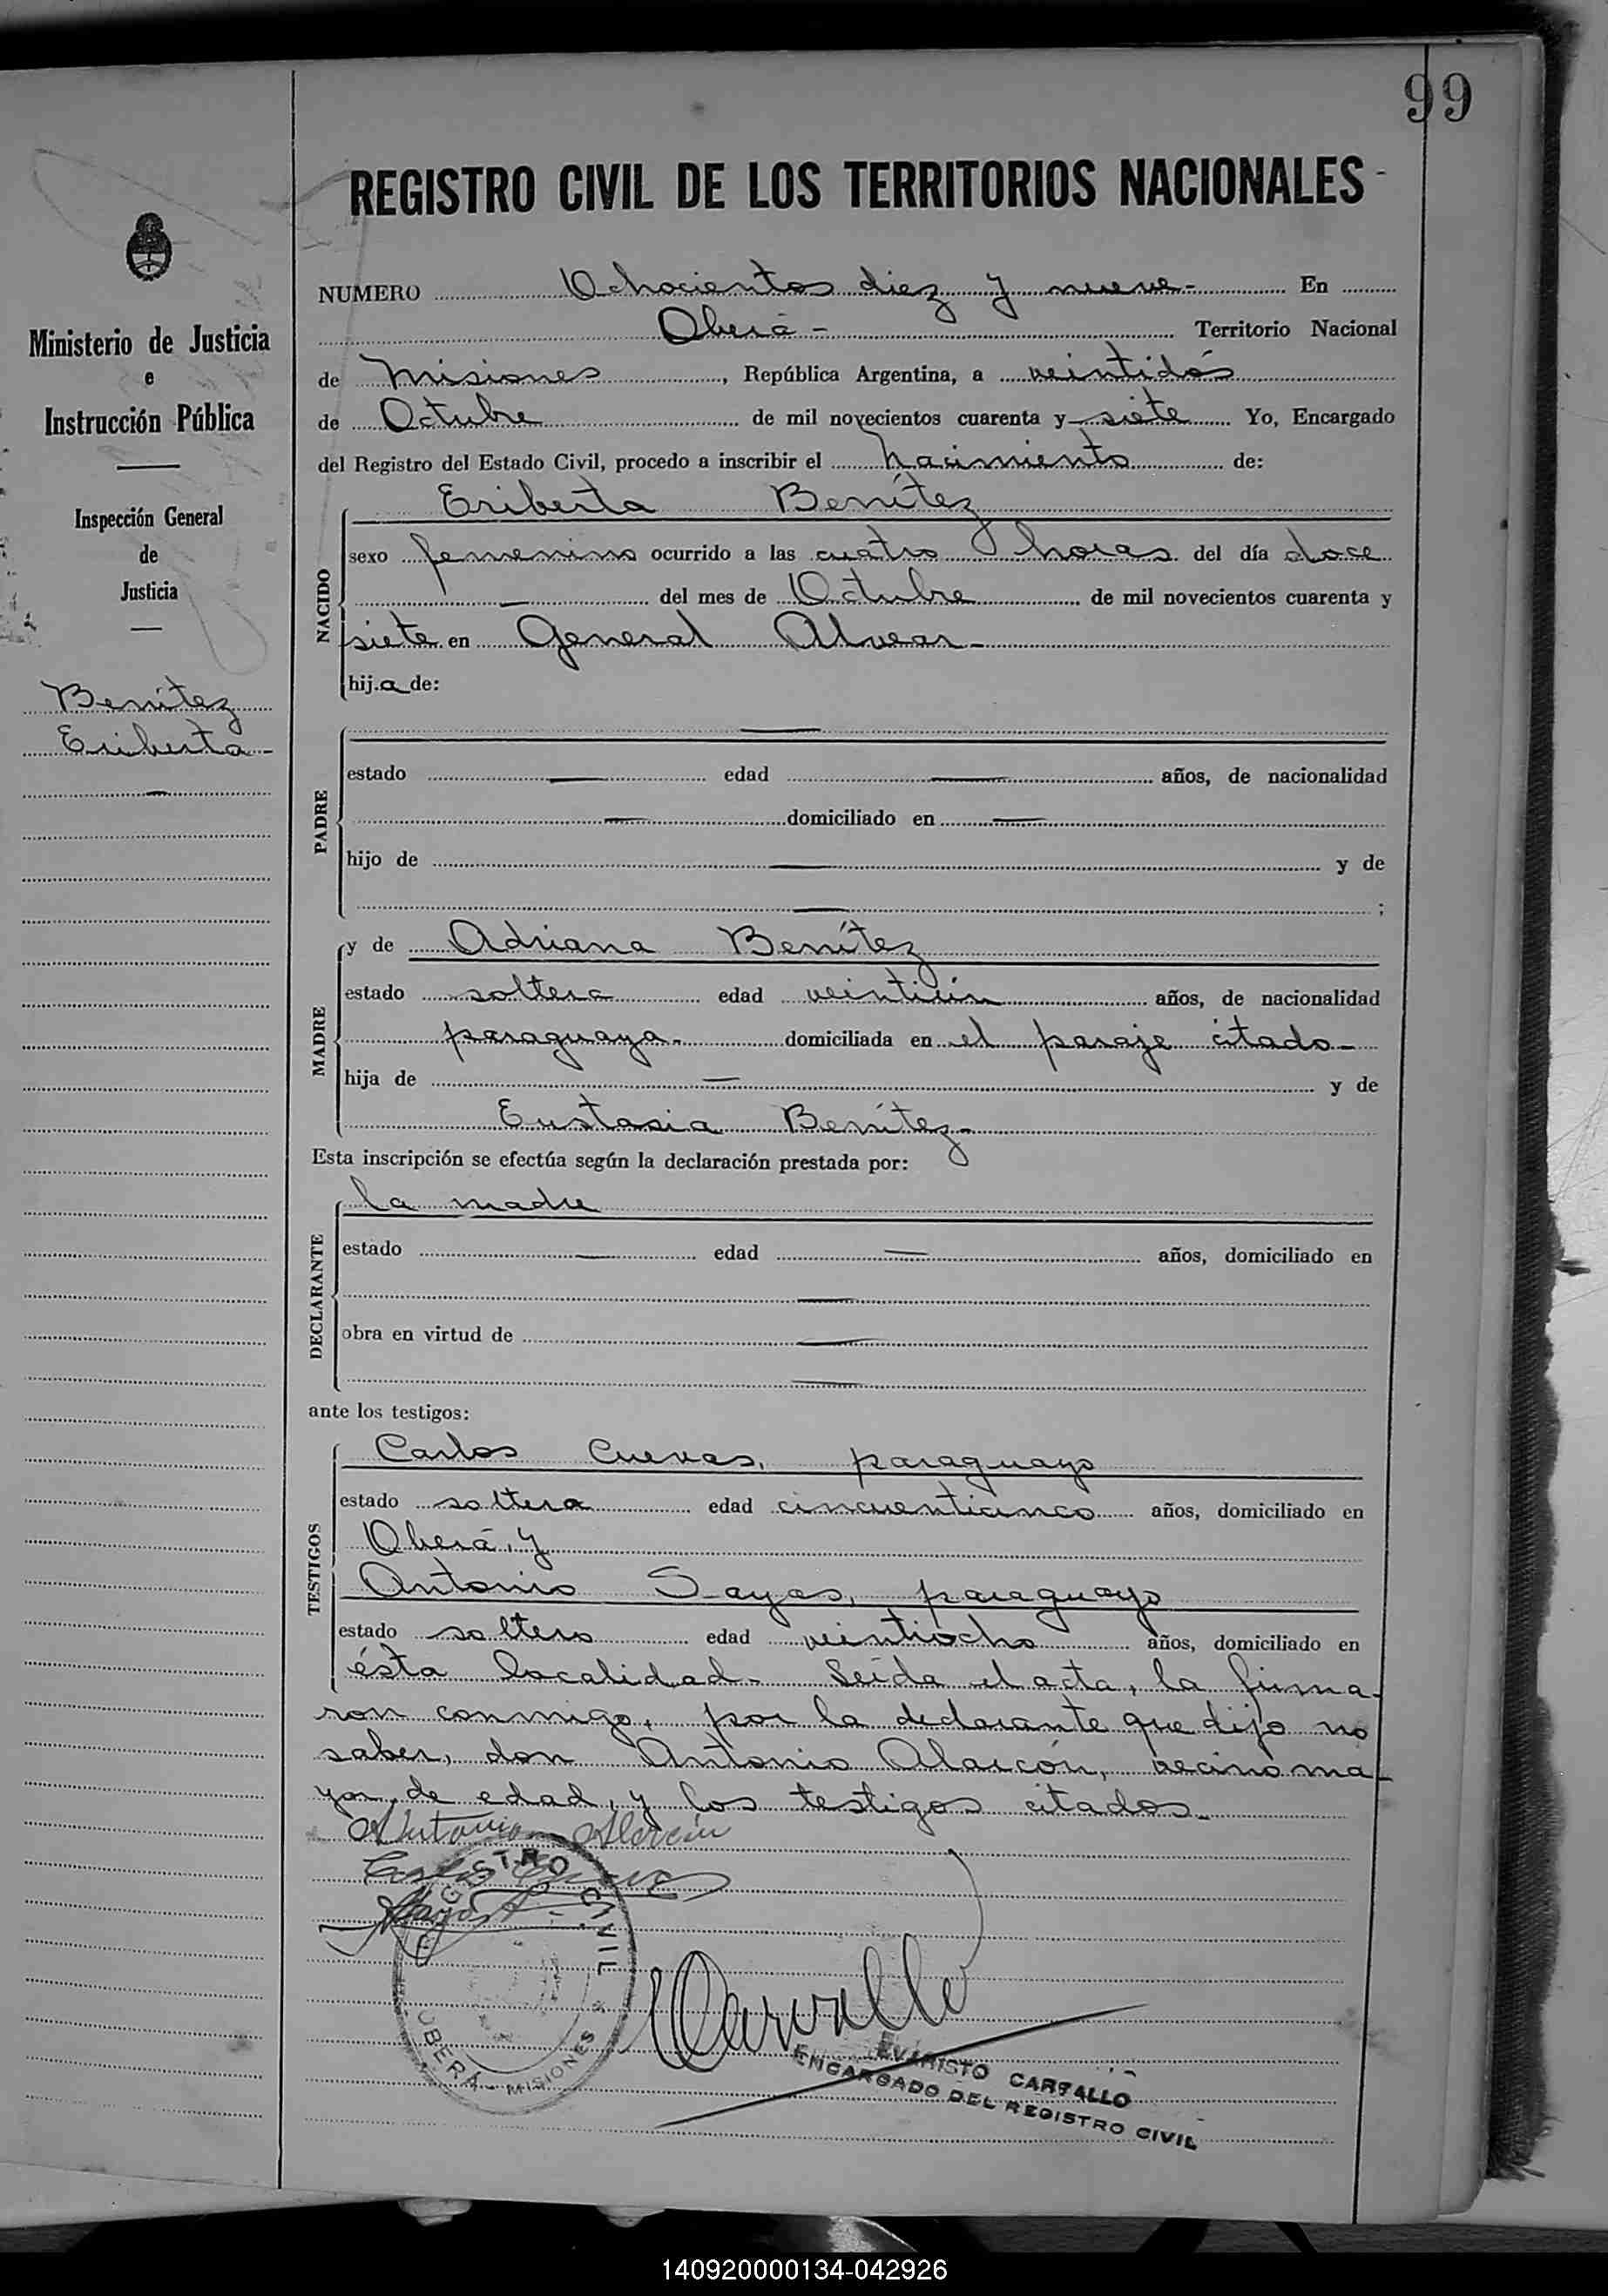 99
REGISTRO CIVIL DE LOS TERRITORIOS NACIONALES
Ministerio de Justicia
e
Instrucción Pública
Inspección General
de
Justicia
Benítez
Eriberta -
NUMERO Ochocientos diez y nueve - En
Oberá - Territorio Nacional
de Misiones, República Argentina, a veintidós
de Octubre de mil novecientos cuarenta y siete Yo, Encargado
del Registro del Estado Civil, procedo a inscribir el nacimiento de:
NACIDO
Eriberta Benítez
sexo femenino ocurrido a las cuatro horas del día doce
— del mes de Octubre de mil novecientos cuarenta y
siete en General Alvear -
hija de:
PADRE
—
estado — edad — años, de nacionalidad
— domiciliado en —
hijo de — y de
— ;
MADRE
y de Adriana Benítez
estado soltera edad veintiún años, de nacionalidad
paraguaya - domiciliada en el paraje citado -
hija de — y de
Eustasia Benítez -
Esta inscripción se efectúa según la declaración prestada por:
DECLARANTE
la madre
estado — edad — años, domiciliado en
—
obra en virtud de —
—
ante los testigos:
TESTIGOS
Carlos Cuevas, paraguayo
estado soltera edad cincuenticinco años, domiciliado en
Oberá, y
Antonio Sayas, paraguayo
estado soltero edad veintiocho años, domiciliado en
ésta localidad - Leída el acta, la firma-
ron conmigo, por la declarante que dijo no
saber, don Antonio Alarcón, vecino ma-
yor de edad, y los testigos citados -
Antonio Alarcón
Carlos Cuevas
REGISTRO CIVIL
OBERÁ - MISIONES
Carvallo
EVARISTO CARVALLO
ENCARGADO DEL REGISTRO CIVIL
140920000134-042926